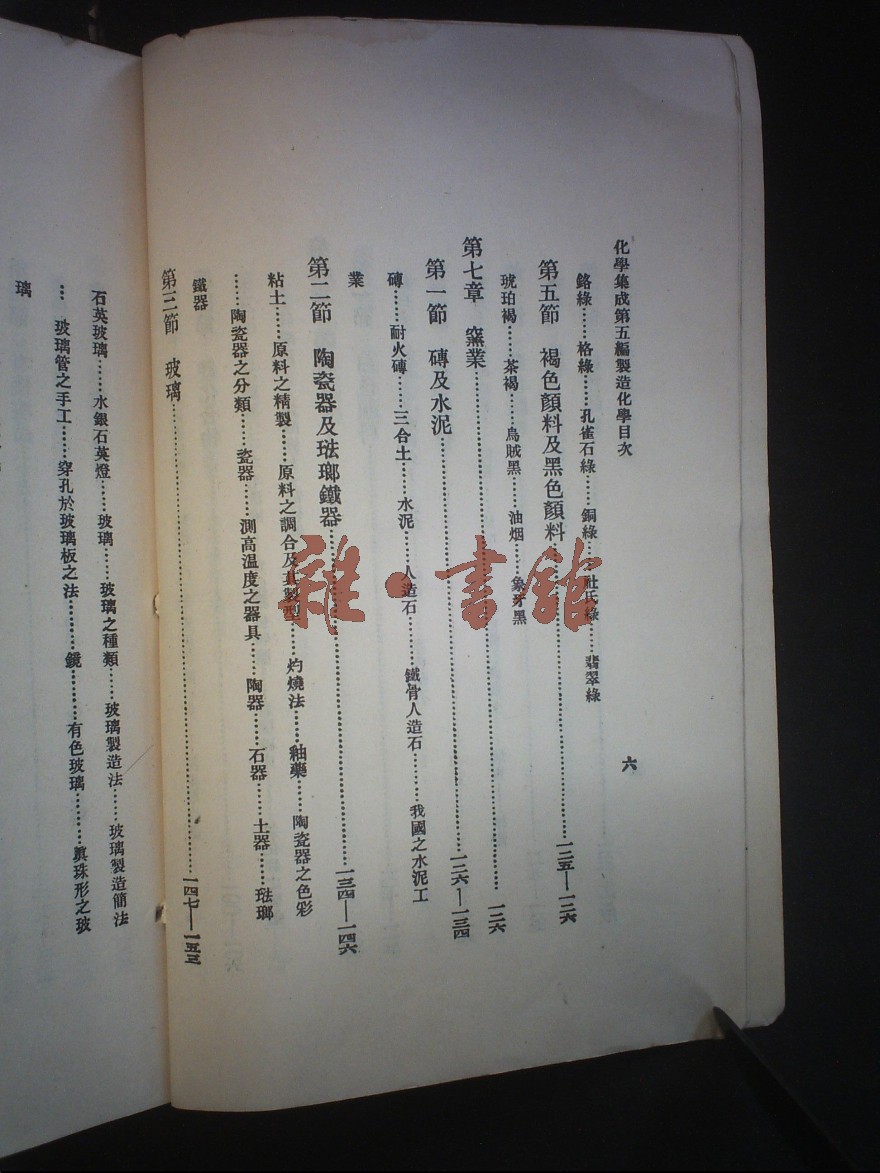 化學集成第五編製造化學目次
六
鉻綠……格綠……孔雀石綠……銅綠……杜氏綠……翡翠綠
第五節 褐色顏料及黑色顏料……一二五—一二六
琥珀褐……茶褐……烏賊黑……油烟……象牙黑
第七章 窰業……一二六
第一節 磚及水泥……一二六—一三四
磚……耐火磚……三合土……水泥……人造石……鐵骨人造石……我國之水泥工
業
第二節 陶瓷器及琺瑯鐵器……一三四—一四六
粘土……原料之精製……原料之調合及其製型……灼燒法……釉藥……陶瓷器之色彩
……陶瓷器之分類……瓷器……測高溫度之器具……陶器……石器……土器……琺瑯
鐵器
第三節 玻璃……一四七—一五三
石英玻璃……水銀石英燈……玻璃……玻璃之種類……玻璃製造法……玻璃製造簡法
…玻璃管之手工……穿孔於玻璃板之法……鏡……有色玻璃……眞珠形之玻
璃
雜·書館